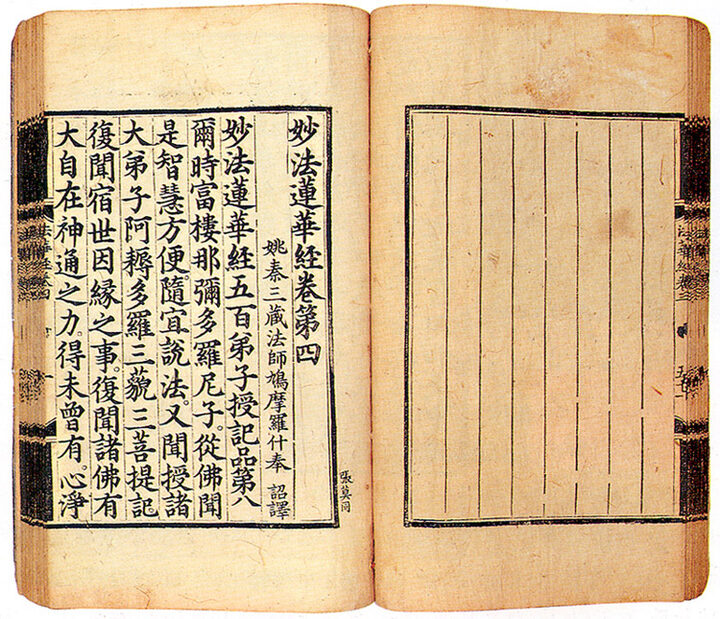 法華经卷三
妙法蓮華经卷第四
姚秦三蔵法師鳩摩羅什奉 詔譯
妙法蓮華經五百弟子授記品第八
爾時富樓那彌多羅尼子。從佛聞
是智慧方便隨宜說法。又聞授諸
大弟子阿耨多羅三藐三菩提記。
復聞宿世因縁之事。復聞諸佛有
大自在神通之力。得未曾有。心淨
張莫同
法華经卷四